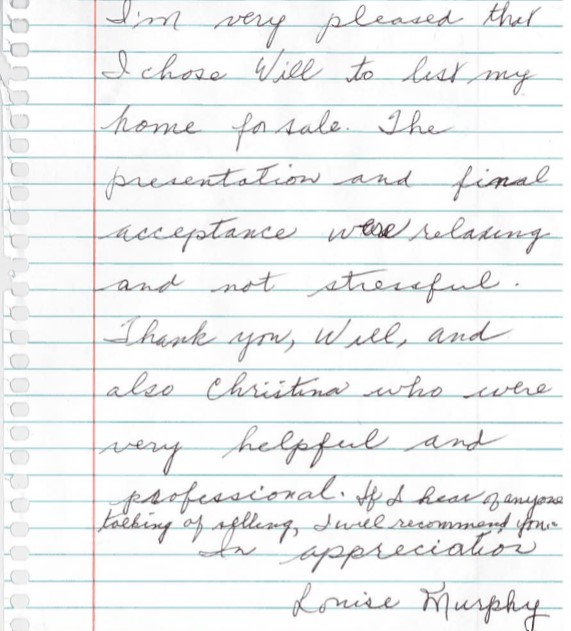 I'm very pleased that
I chose Will to list my
home for sale. The
presentation and final
acceptance were relaxing
and not stressful.
Thank you, Will, and
also Christina who were
very helpful and
professional. If I hear of anyone
talking of selling, I will recommend you.
In appreciation
Louise Murphy